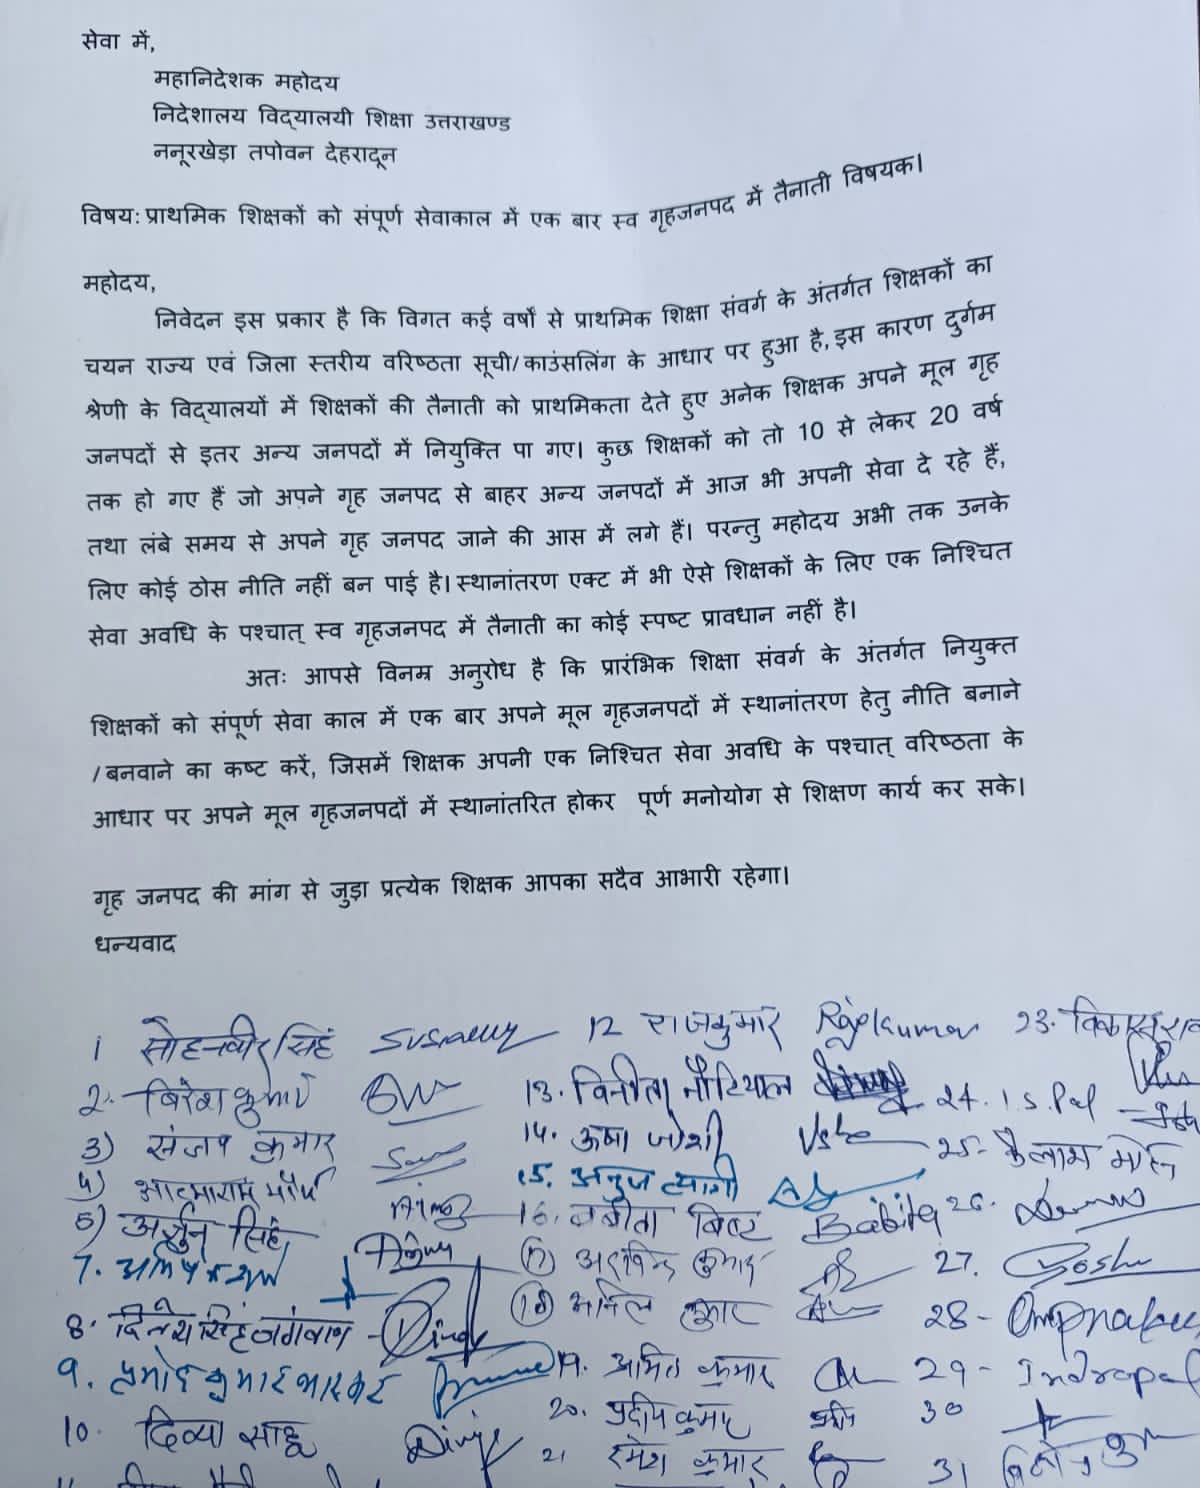 सेवा में,
महानिदेशक महोदय
निदेशालय विद्यालयी शिक्षा उत्तराखण्ड
ननूरखेड़ा तपोवन देहरादून
विषय: प्राथमिक शिक्षकों को संपूर्ण सेवाकाल में एक बार स्व गृहजनपद में तैनाती विषयक।
महोदय,
निवेदन इस प्रकार है कि विगत कई वर्षों से प्राथमिक शिक्षा संवर्ग के अंतर्गत शिक्षकों का
चयन राज्य एवं जिला स्तरीय वरिष्ठता सूची/काउंसलिंग के आधार पर हुआ है, इस कारण दुर्गम
श्रेणी के विद्यालयों में शिक्षकों की तैनाती को प्राथमिकता देते हुए अनेक शिक्षक अपने मूल गृह
जनपदों से इतर अन्य जनपदों में नियुक्ति पा गए। कुछ शिक्षकों को तो 10 से लेकर 20 वर्ष
तक हो गए हैं जो अपने गृह जनपद से बाहर अन्य जनपदों में आज भी अपनी सेवा दे रहे हैं,
तथा लंबे समय से अपने गृह जनपद जाने की आस में लगे हैं। परन्तु महोदय अभी तक उनके
लिए कोई ठोस नीति नहीं बन पाई है। स्थानांतरण एक्ट में भी ऐसे शिक्षकों के लिए एक निश्चित
सेवा अवधि के पश्चात् स्व गृहजनपद में तैनाती का कोई स्पष्ट प्रावधान नहीं है।
अतः आपसे विनम्र अनुरोध है कि प्रारंभिक शिक्षा संवर्ग के अंतर्गत नियुक्त
शिक्षकों को संपूर्ण सेवा काल में एक बार अपने मूल गृहजनपदों में स्थानांतरण हेतु नीति बनाने
/बनवाने का कष्ट करें, जिसमें शिक्षक अपनी एक निश्चित सेवा अवधि के पश्चात् वरिष्ठता के
आधार पर अपने मूल गृहजनपदों में स्थानांतरित होकर पूर्ण मनोयोग से शिक्षण कार्य कर सके।
गृह जनपद की मांग से जुड़ा प्रत्येक शिक्षक आपका सदैव आभारी रहेगा।
धन्यवाद
1 सोहनवीर सिंह
2. कुमार
3) संजय कुमार
4) आत्माराम
6) अर्जुन सिंह
7.
8. दिनेश सिंह
9. प्रमोद कुमार भास्कर
10. दिव्या साहू
12 राजकुमार Rajkumar
13. विनीता नौटियाल
14. ऊषा जोशी Usha
15. अनुज त्यागी
16. बबीता बिष्ट Babita
17) अरविन्द कुमार
18)
19. अमित कुमार
20. प्रदीप कुमार प्रदीप
21 रमेश कुमार
23.
24. I.S. Pal
25- कैलाश
26.
27.
28-
29- Indrapal
30
31